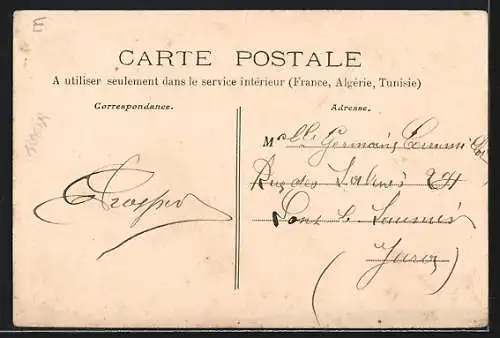 E
CARTE POSTALE
A utiliser seulement dans le service intérieur (France, Algérie, Tunisie)
Correspondance.
Adresse.
Prosper
Mlle Germaine
Rue des Salines 24
Lons le Saunier
Jura